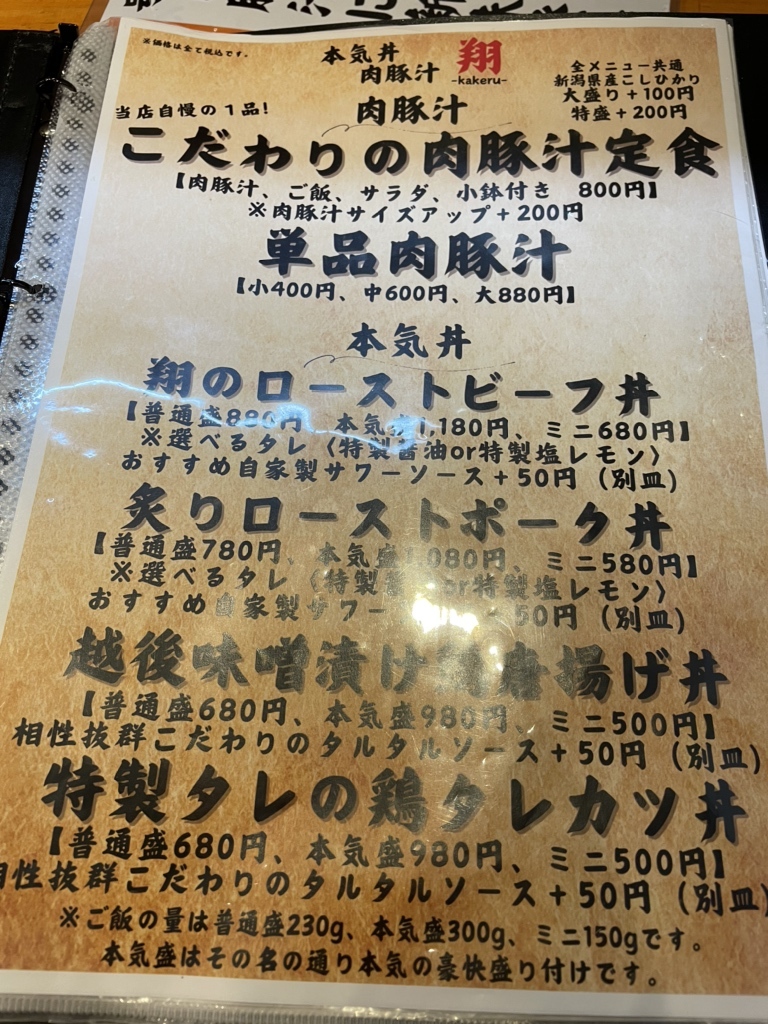 ※価格は全て税込です。
本気丼
肉豚汁
翔
-kakeru-
全メニュー共通
新潟県産こしひかり
大盛り+100円
特盛+200円
肉豚汁
当店自慢の1品!
こだわりの肉豚汁定食
【肉豚汁、ご飯、サラダ、小鉢付き 800円】
※肉豚汁サイズアップ+200円
単品肉豚汁
【小400円、中600円、大880円】
本気丼
翔のローストビーフ丼
【普通盛880円、本気盛1,180円、ミニ680円】
※選べるタレ〈特製醤油or特製塩レモン〉
おすすめ自家製サワーソース+50円(別皿)
炙りローストポーク丼
【普通盛780円、本気盛1,080円、ミニ580円】
※選べるタレ〈特製醤 or特製塩レモン〉
おすすめ自家製サワー +50円(別皿)
越後味噌漬け 唐揚げ丼
【普通盛680円、本気盛980円、ミニ500円】
相性抜群こだわりのタルタルソース+50円(別皿)
特製タレの鶏タレカツ丼
【普通盛680円、本気盛980円、ミニ500円】
相性抜群こだわりのタルタルソース+50円(別皿)
※ご飯の量は普通盛230g、本気盛300g、ミニ150gです。
本気盛はその名の通り本気の豪快盛り付けです。